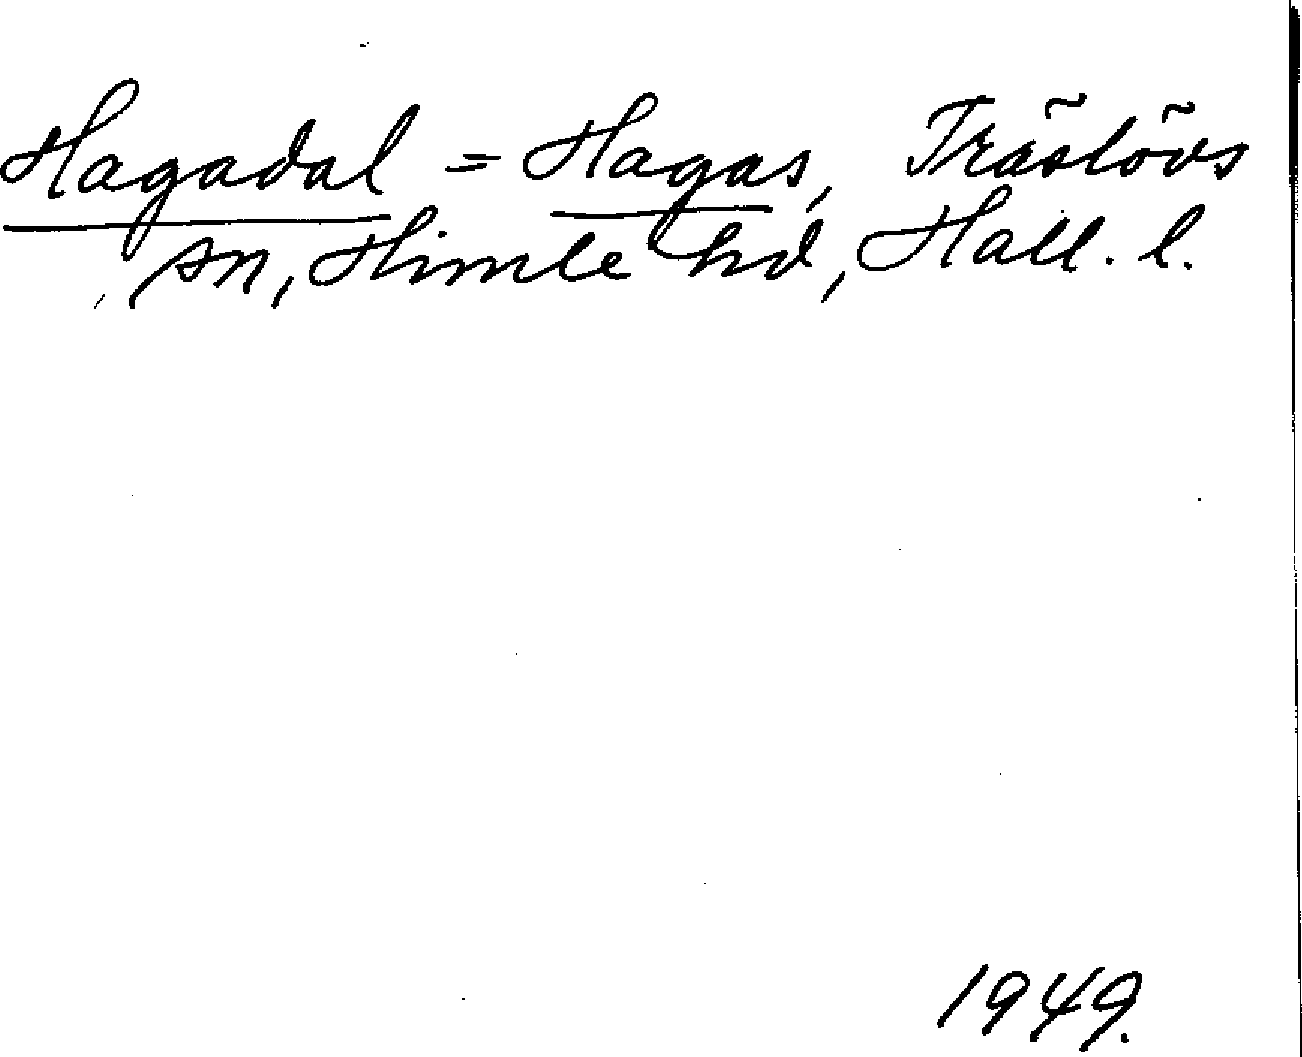 Hagadal = Hagas, Träslövs
sn, Himle hd, Hall. l.
1949.